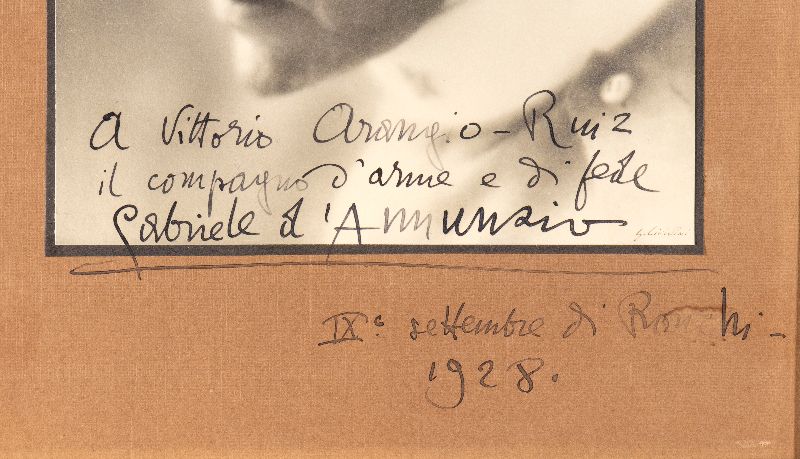 A Vittorio Arangio-Ruiz
il compagno d'arme e di fede
Gabriele d'Annunzio
IXº settembre di Ronchi -
1928.